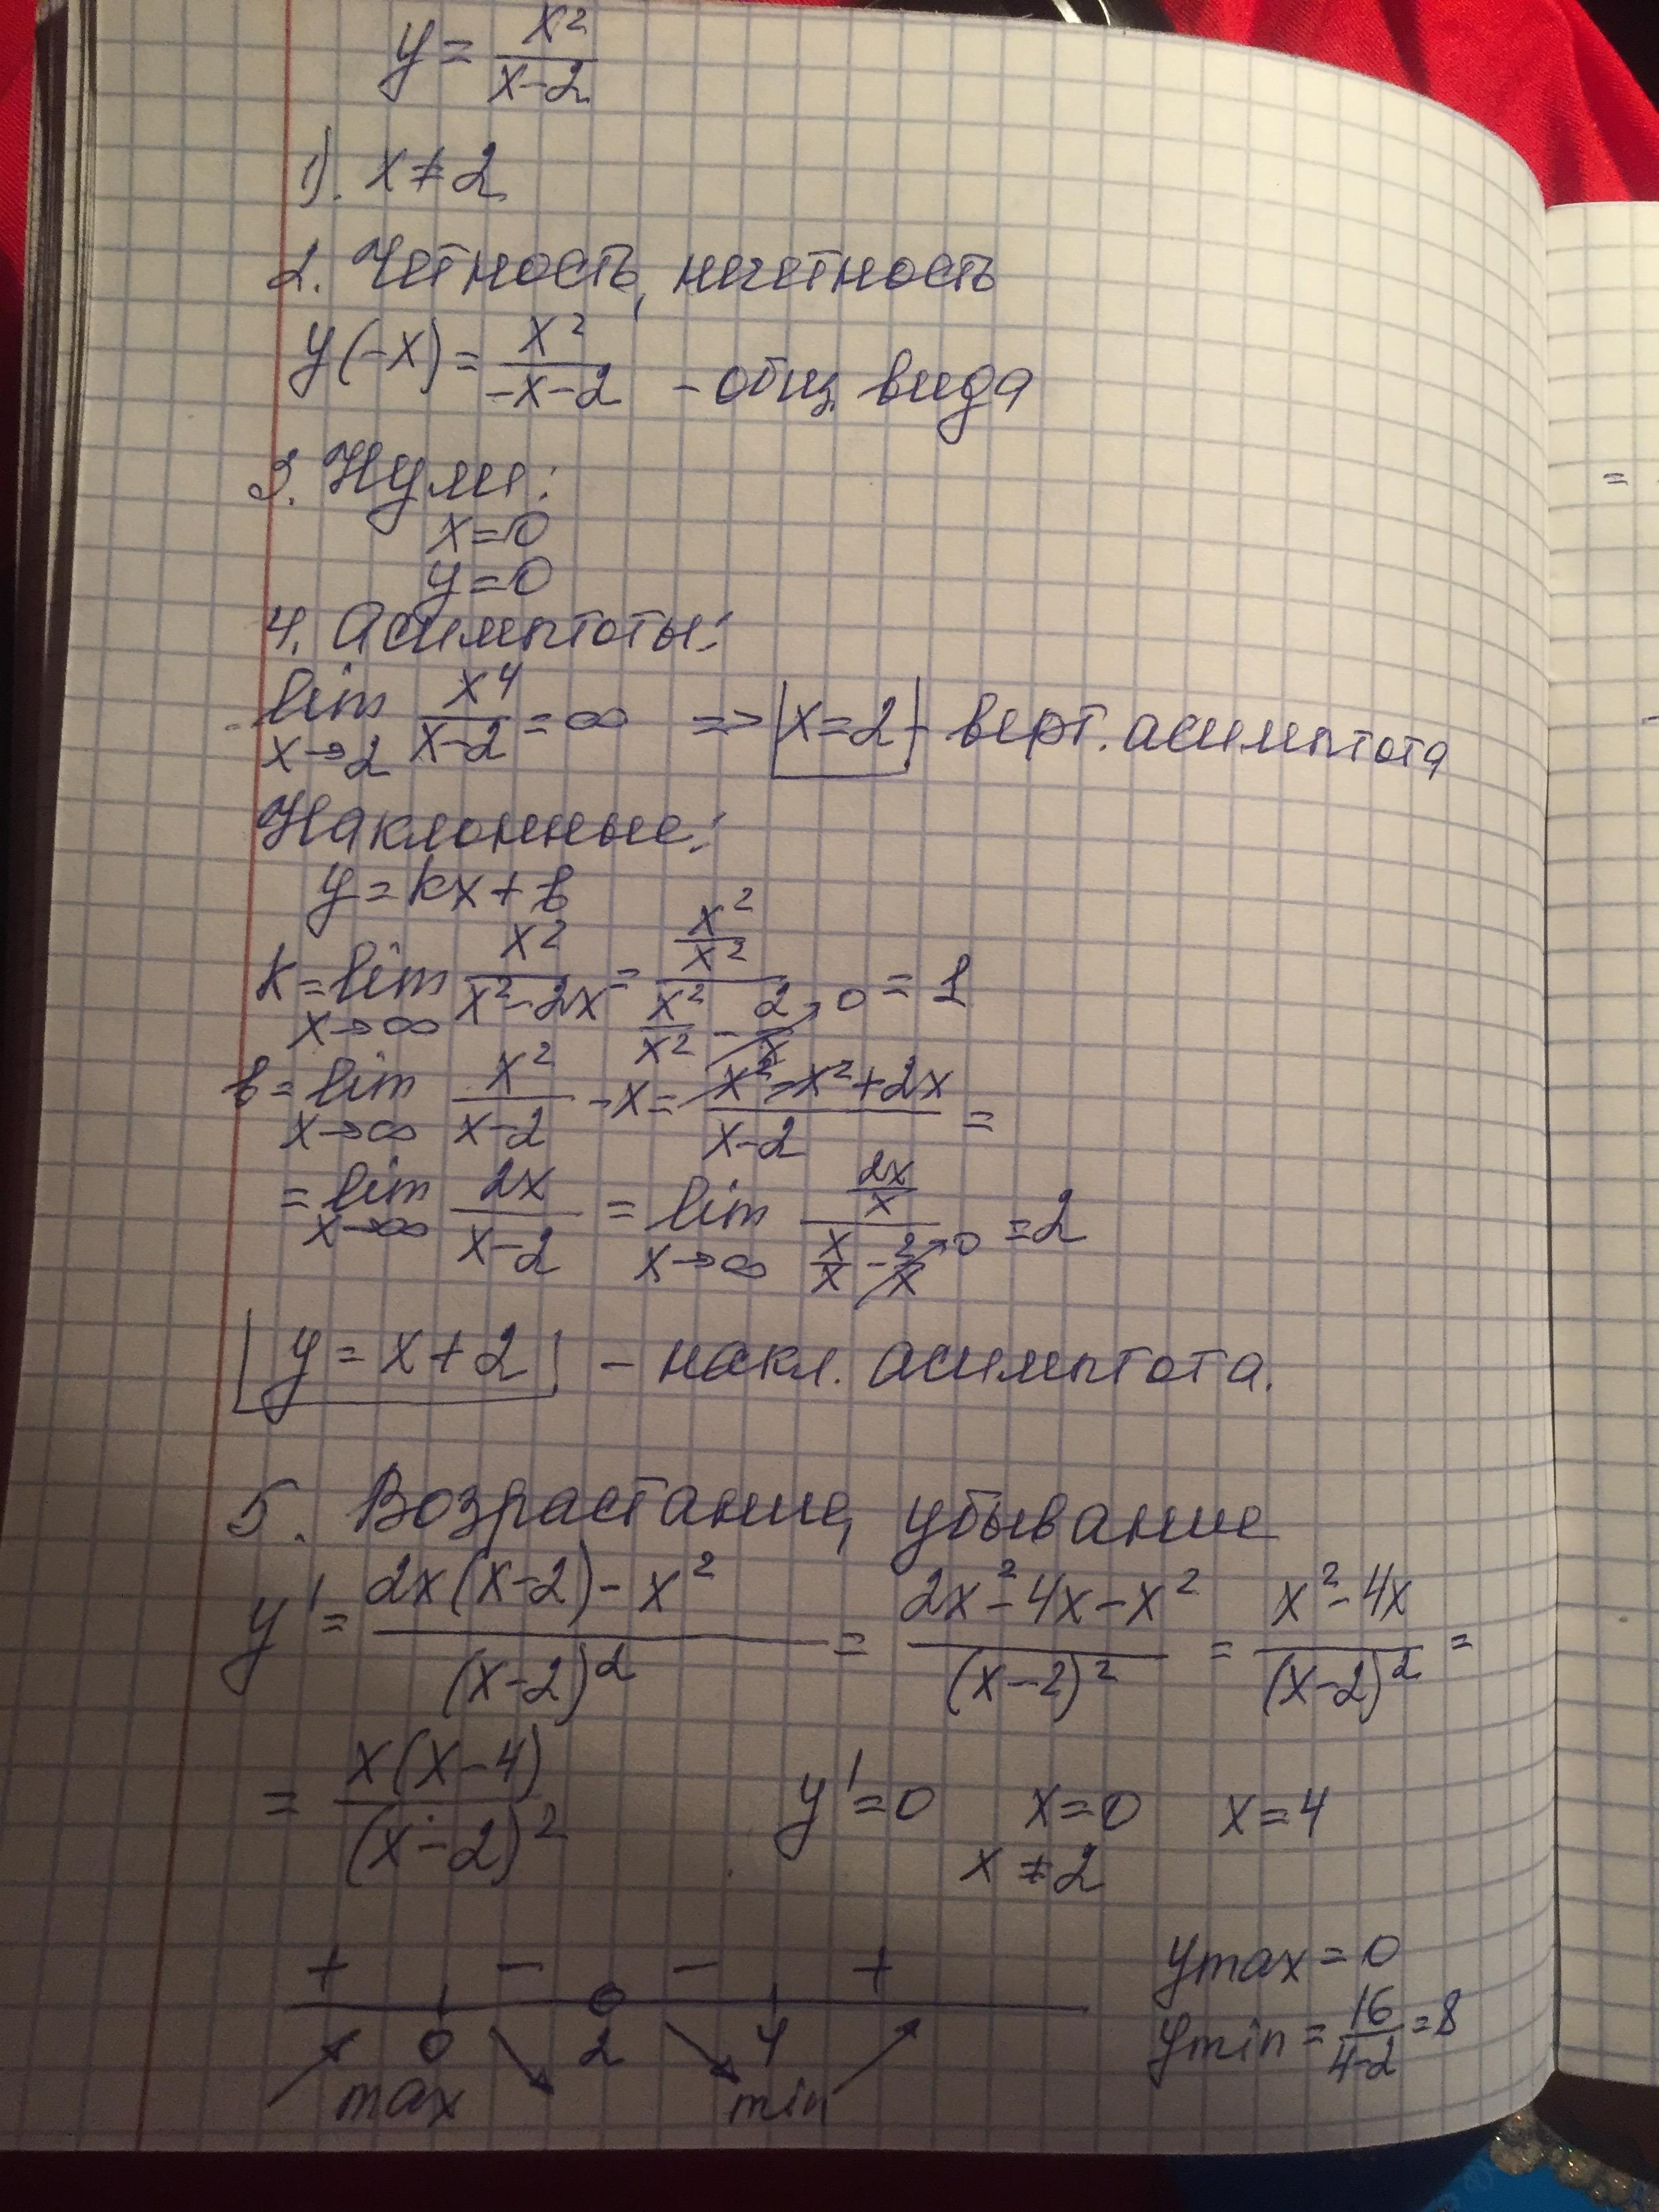 y = x²/(x-2)
1). x ≠ 2
2. Четность, нечетность
y(-x) = x²/(-x-2) - общ. вида
3. Нули:
x=0
y=0
4. Асимптоты:
lim x→2 x⁴/(x-2) = ∞ => x=2 - верт. асимптота
Наклонные:
y = kx + b
k = lim x→∞ x²/(x²-2x) = (x²/x²)/(x²/x² - 2/x →0) = 1
b = lim x→∞ x²/(x-2) - x = (x²-x²+2x)/(x-2) =
= lim x→∞ 2x/(x-2) = lim x→∞ (2x/x)/(x/x - 2/x →0) = 2
y = x+2 - накл. асимптота.
5. Возрастание, убывание
y' = (2x(x-2) - x²)/(x-2)² = (2x²-4x-x²)/(x-2)² = (x²-4x)/(x-2)² =
= x(x-4)/(x-2)² y'=0 x=0 x=4
x ≠ 2
+ - - + ymax = 0
0 2 4 ymin = 16/(4-2) = 8
max min
=